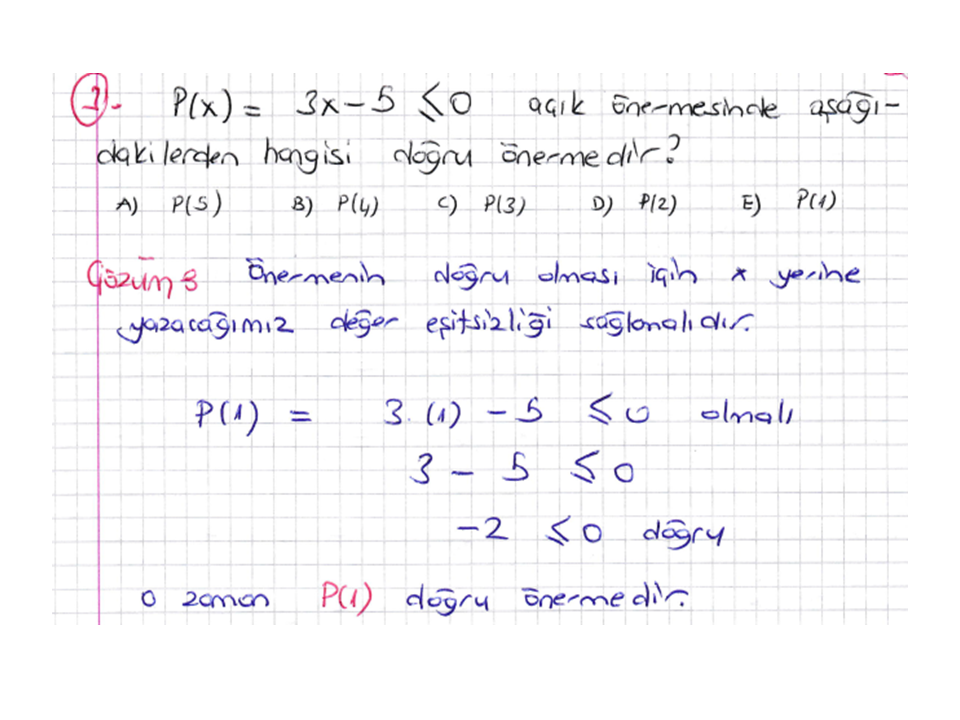 3- P(x) = 3x-5 ≤0 açık önermesinde aşağı-
dakilerden hangisi doğru önermedir?
A) P(5) B) P(4) C) P(3) D) P(2) E) P(1)
Çözüm: Önermenin doğru olması için x yerine
yazacağımız değer eşitsizliği sağlamalıdır.
P(1) = 3.(1) - 5 ≤ 0 olmalı
3 - 5 ≤ 0
-2 ≤ 0 doğru
O zaman P(1) doğru önermedir.